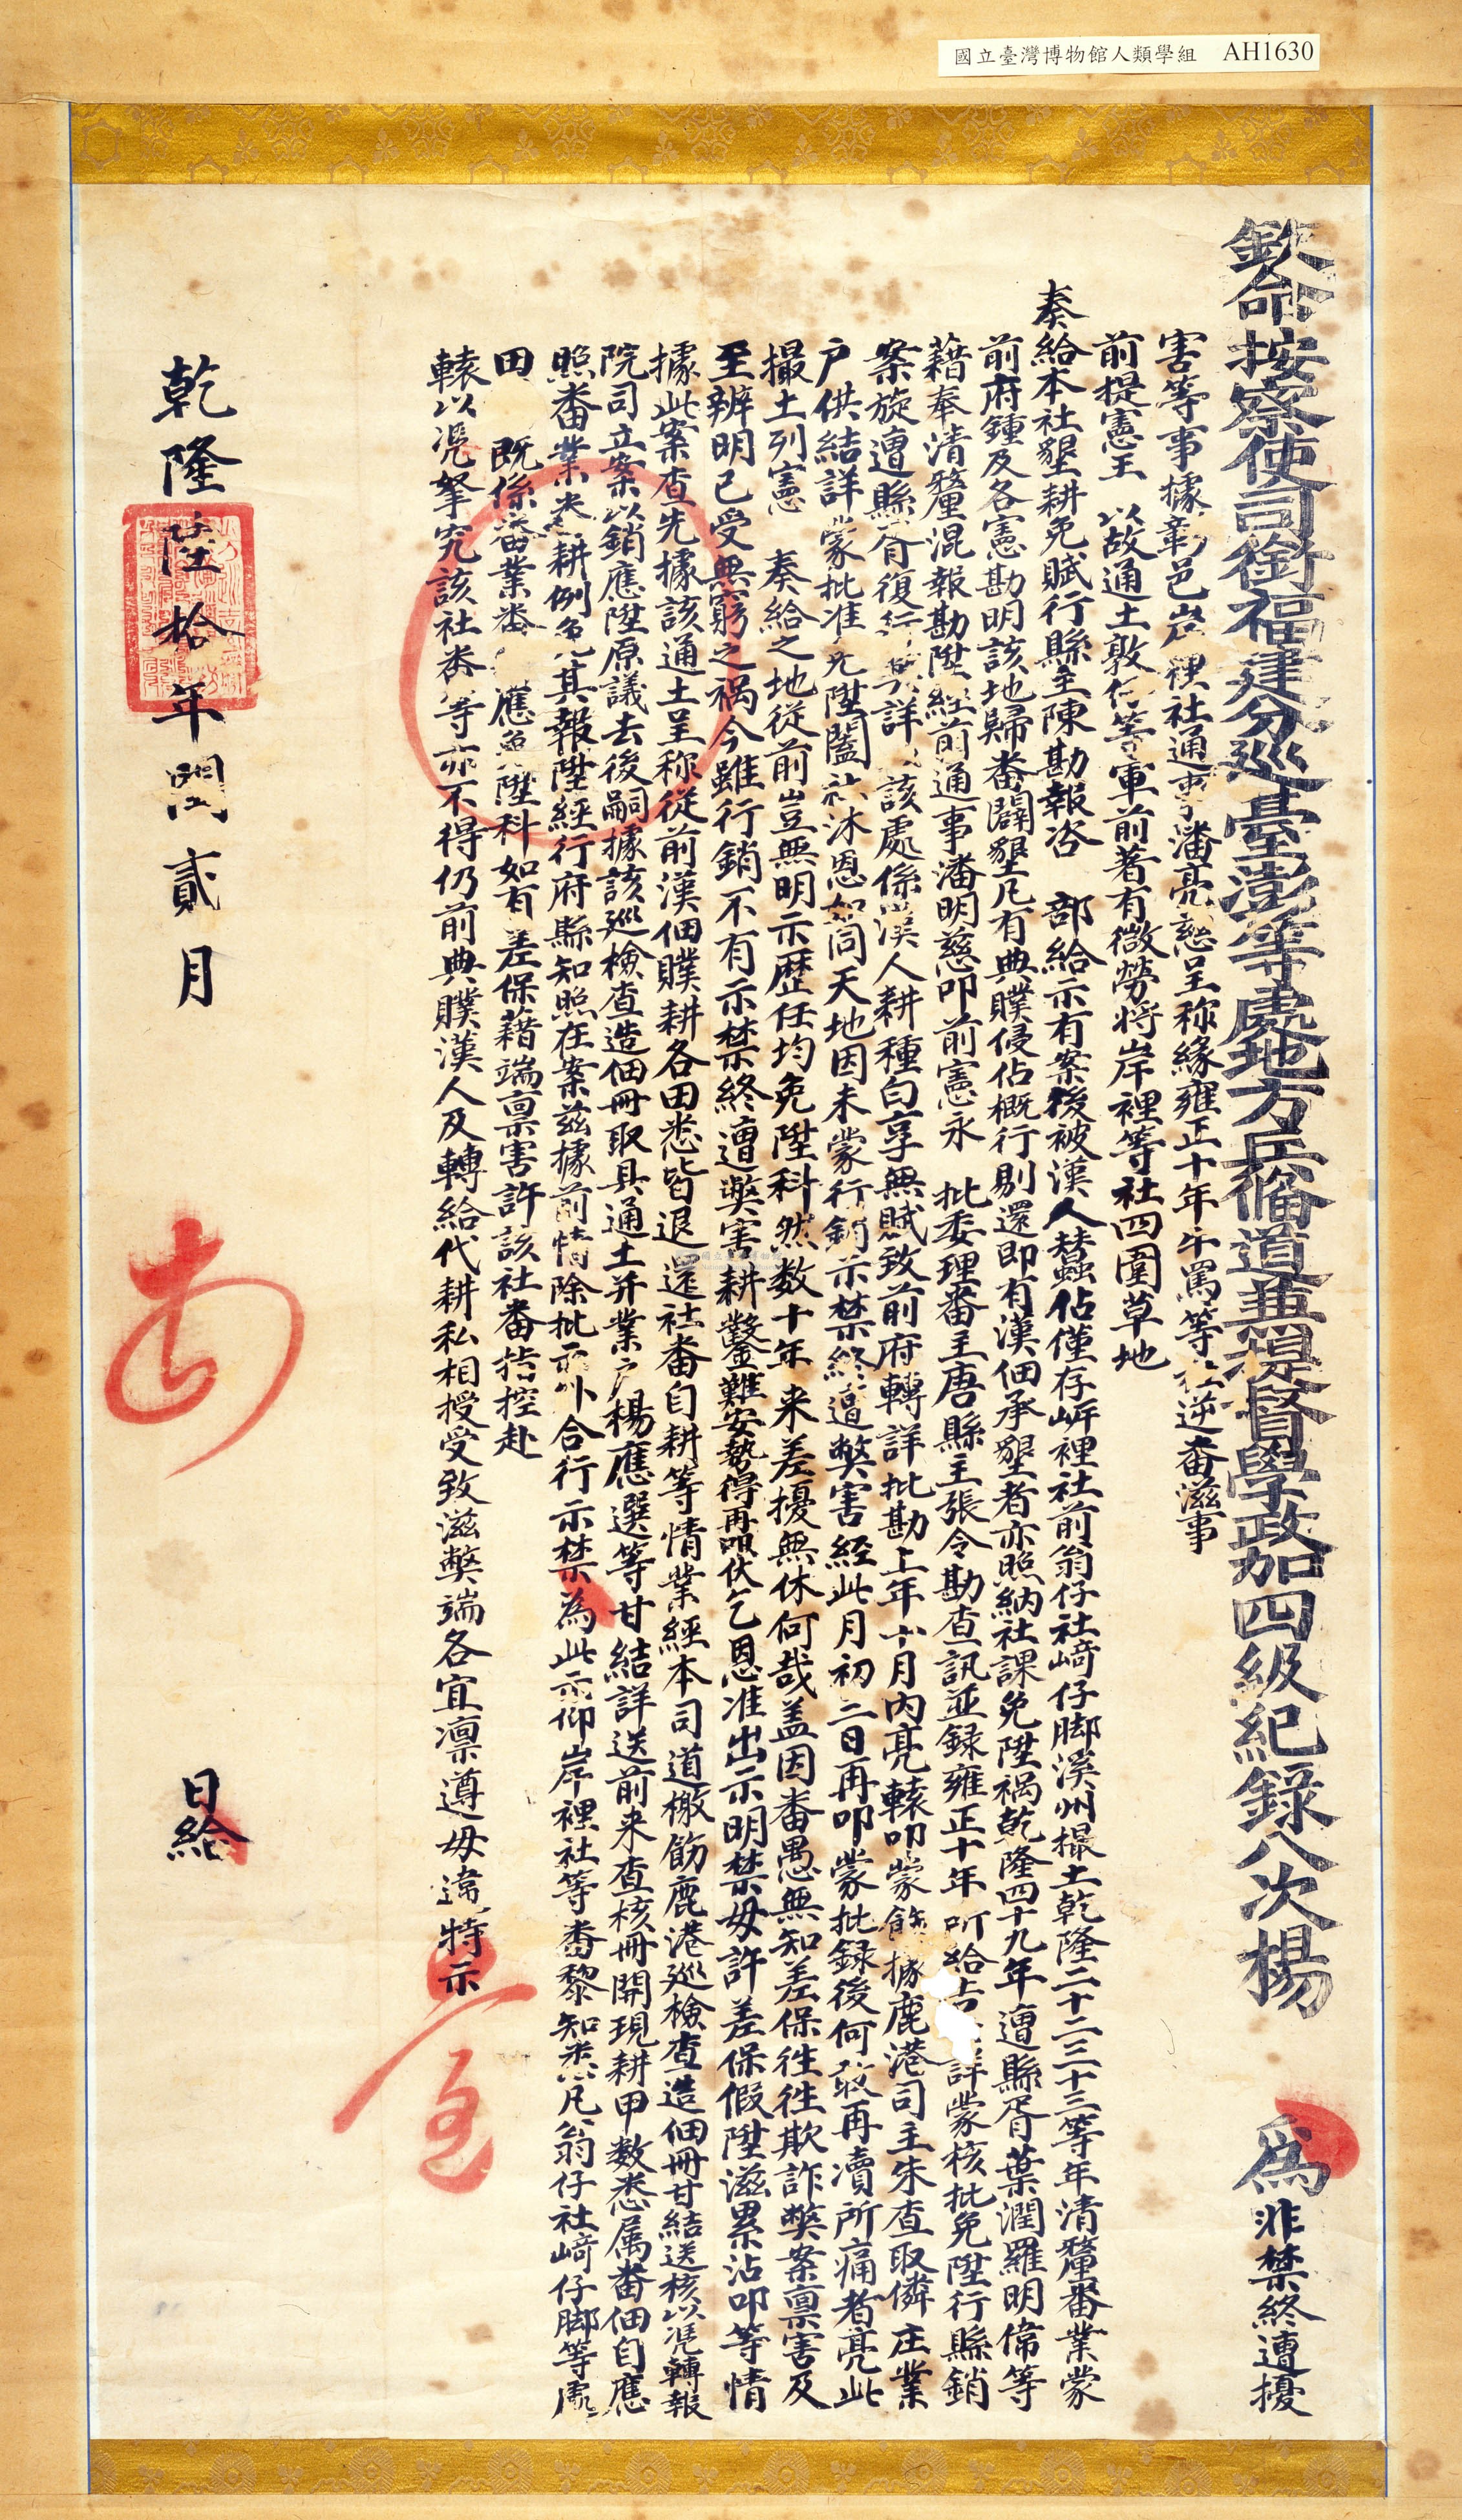 國立臺灣博物館人類學組 AH1630
欽命按察使司銜福建分巡臺澎等處地方兵備道兼提督學政加四級紀錄八次楊 為非禁終遭擾
害等事據彰邑岸裡社通事潘亮慈呈称緣雍正十年牛罵等社逆番滋事
前提憲王 以故通土敦仔等軍前著有微勞將岸裡等社四圍草地
奏給本社墾耕免賦行縣主陳勘報咨 部給示有案後被漢人蠶佔僅存岸裡社前翁仔社﨑仔脚溪州撮土乾隆二十二三十三等年清釐番業蒙
前府鍾及各憲勘明該地歸番闢墾凡有典贌侵佔概行剔還即有漢佃承墾者亦照納社課免陞禍乾隆四十九年遭縣胥葉潤羅明偉等
藉奉清釐混報勘陞經前通事潘明慈叩前憲永 批委理番主唐縣主張令勘查訊並録雍正十年所給古 詳蒙核批免陞行縣銷
案旋遭縣胥復行 詳 該處係漢人耕種白享無賦致前府轉詳批勘上年十月內亮轅叩蒙飭據鹿港司主朱查取隣庄業
户供結詳蒙批准免陞闔社沐恩如同天地因未蒙行銷示禁終遭弊害經此月初二日再叩蒙批録後何敢再瀆所痛者亮此
撮土列憲 奏給之地從前豈無明示歷任均免陞科然数十年来差擾無休何哉盖因番愚無知差保徃徃欺詐弊案禀害及
至辨明已受無窮之禍今雖行銷不有示禁終遭弊害耕鑿難安勢得再叩伏乞恩准出示明禁毋許差保假陞滋累沾叩等情
據此案查先據該通土呈称從前漢佃贌耕各田悉皆退還社番自耕等情業經本司道檄飭鹿港巡檢查造佃冊甘結送核以凭轉報
院司立案以銷應陞原議去後嗣據該巡檢查造佃冊取具通土并業户楊應選等甘結詳送前来查核冊開現耕甲数悉属番佃自應
照番業番耕例免其報陞經行府縣知照在案兹據前情除批示外合行示禁為此示仰岸裡社等番黎知悉凡翁仔社﨑仔脚等處
田 既係番業番 應免陞科如有差保藉端禀害許該社番指控赴
轅以凭拏究該社番等亦不得仍前典贌漢人及轉給代耕私相授受致滋弊端各宜凛遵毋違特示
乾隆陸拾年閏貳月 日給